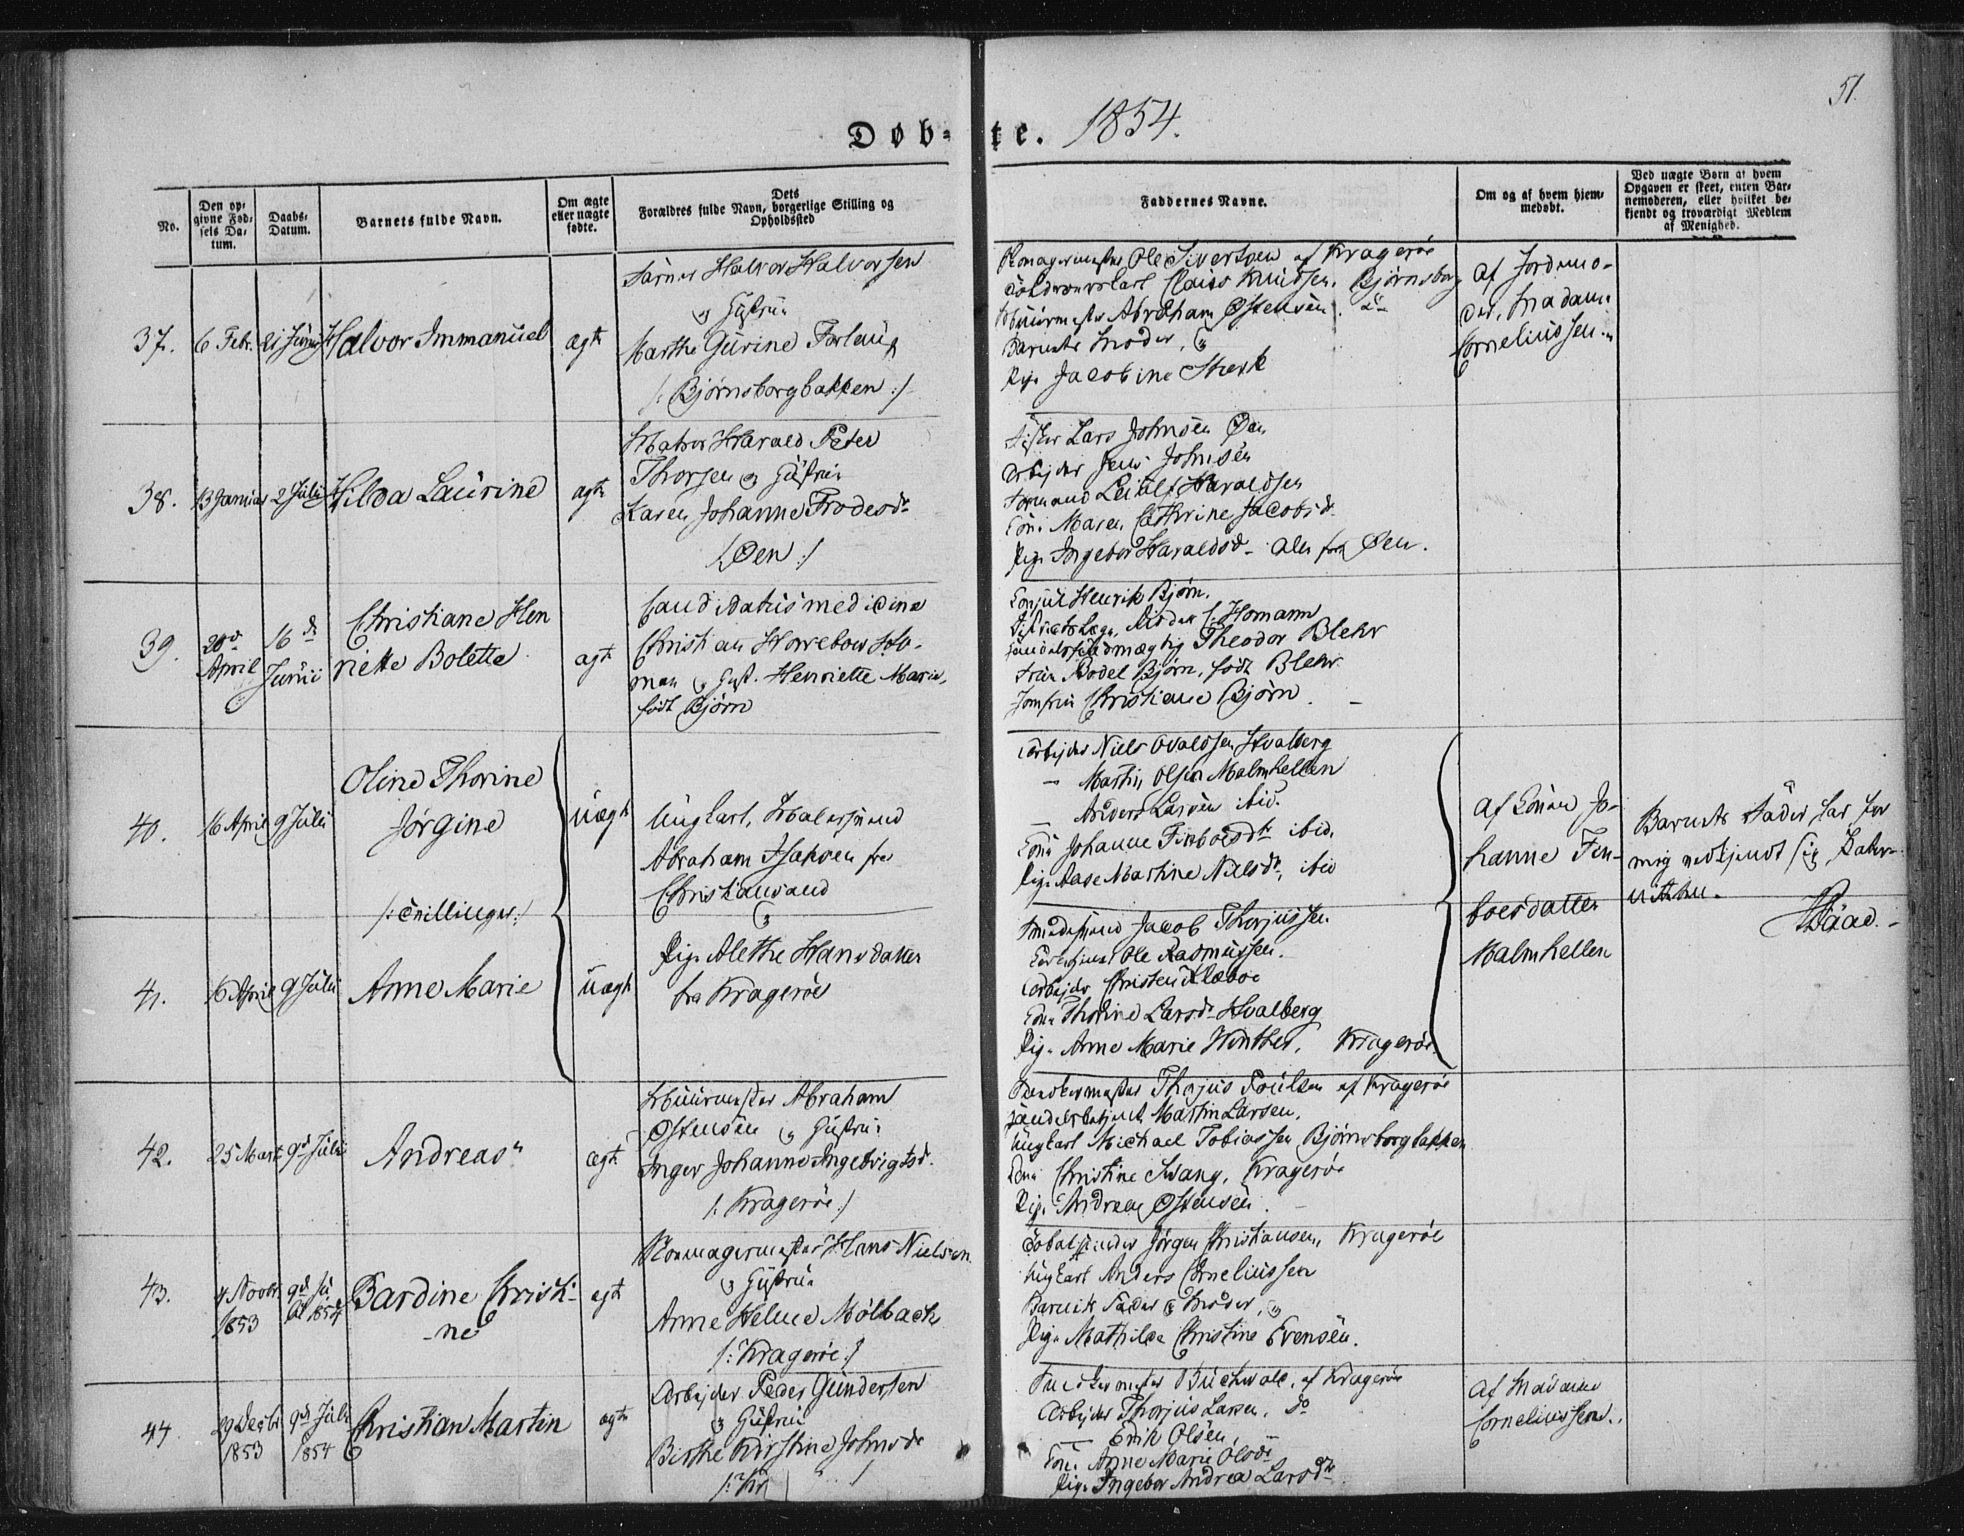 51.
Døb-te. 1854.
No.
Den opgivne Fødsels Datum.
Daabs-Datum.
Barnets fulde Navn.
Om ægte eller uægte fødte.
Dets Forældres fulde Navn, borgerlige Stilling og Opholdssted
Faddernes Navne.
Om og af hvem hjemmedøbt.
Ved uægte Børn at hvem Opgaven er skeet, enten Barnemoderen, eller hvilket bekjendt og troværdigt Medlem af Menighed.
37.
6 Febr.
Halvor Immanuel
ægte
Halvor Halvorsen
og Hustrue
Marthe Gurine
/: Bjørnsborgbakken :/
Ole Sivertsen af Kragerøe
Knudsen, Bjørnsborg
Muurmester Abraham Østensen. do
Barnets Moder, og
Pige Jacobine
af Jordemo-
der, Madame
Corneliussen
38.
13 Januar
2 Juli
Hilda Laurine
ægte
Matros Harald Peter
Thorsen og Hustrue
Karen Johanne Frodesdr
/: Øen :/
Fisker Lars Johnsen Øen
Arbejder Jens Johnsen
Haraldsen
Kone Maren Cathrine Jacobsd.
Pige Ingebor Haraldsd. alle fra Øen.
39.
20d April
16de Junii
Christiane Hen
riette Bolette
ægte
Candidatus medicinæ
Christian Horrebow Ho-
man og Hust. Henriette Marie,
født Bjørn
Consul Henrik Bjørn.
C. Homann
Theodor Blehr
Frue Bodel Bjørn, født Blehr
Jomfrue Christiane Bjørn.
40.
16 April
9 Juli
Oline Thorine
Jørgine
/: Tvillinger :/
uægte
Ungkarl, Malersvend
Abraham Isaksen fra
Christiansand
og
Pige Alethe Hansdatter
fra Kragerøe
Arbejder Niels Hvalberg
— Martin Olsen Malmhellen
— Anders Larsen ibid.
Kone Johanne ibid.
Pige Aase Martine Nielsdr, ibid
af Konen Jo-
hanne Fin-
boesdatter
Malmhellen
Barnets Fader har for
mig vedkjendt sig Pater-
niteten.
41.
16 April
9 Juli
Anne Marie
uægte
Jacob Thorjussen
Ole Rasmussen.
Arbejder Christen Klæboe
Kone Thorine Larsdr Hvalberg
Pige Anne Marie Winther, Kragerøe.
42.
25 Marts
9d Juli
Andreas
ægte
Muurmester Abraham
Østensen og Hustrue
Inger Johanne Ingebrigtsd.
/: Kragerøe :/
Thorjus Poulsen af Kragerøe
Martin Larsen,
Ungkarl Michael Tobiassen Bjørnsborgbakken
Kone Christine Svang, Kragerøe
Pige Andrea Østensen.
43.
4 Novbr 1853
9d Juli 1854
Bardine Christi-
ne
ægte
Skomagermester Hans Nielsen
og Hustrue
Anne Helene Mølback
/: Kragerøe :/
Jørgen Christiansen, Kragerøe
Ungkarl Anders Corneliussen
Barnets Fader og Moder, og
Pige Mathilde Christine Evensen.
44
29 Decbr 1853
9d Juli 1854
Christian Martin
ægte
Arbejder Peder Gundersen
og Hustrue
Birthe Kirstine Johnsdr
/: Kr
Snedkermester Buchwald, af Kragerøe
Arbejder Thorjus Larsen, do
— Erik Olsen, —
Kone Anne Marie Olsdr
Pige Ingebor Andrea Larsdr
af Madame
Corneliussen.